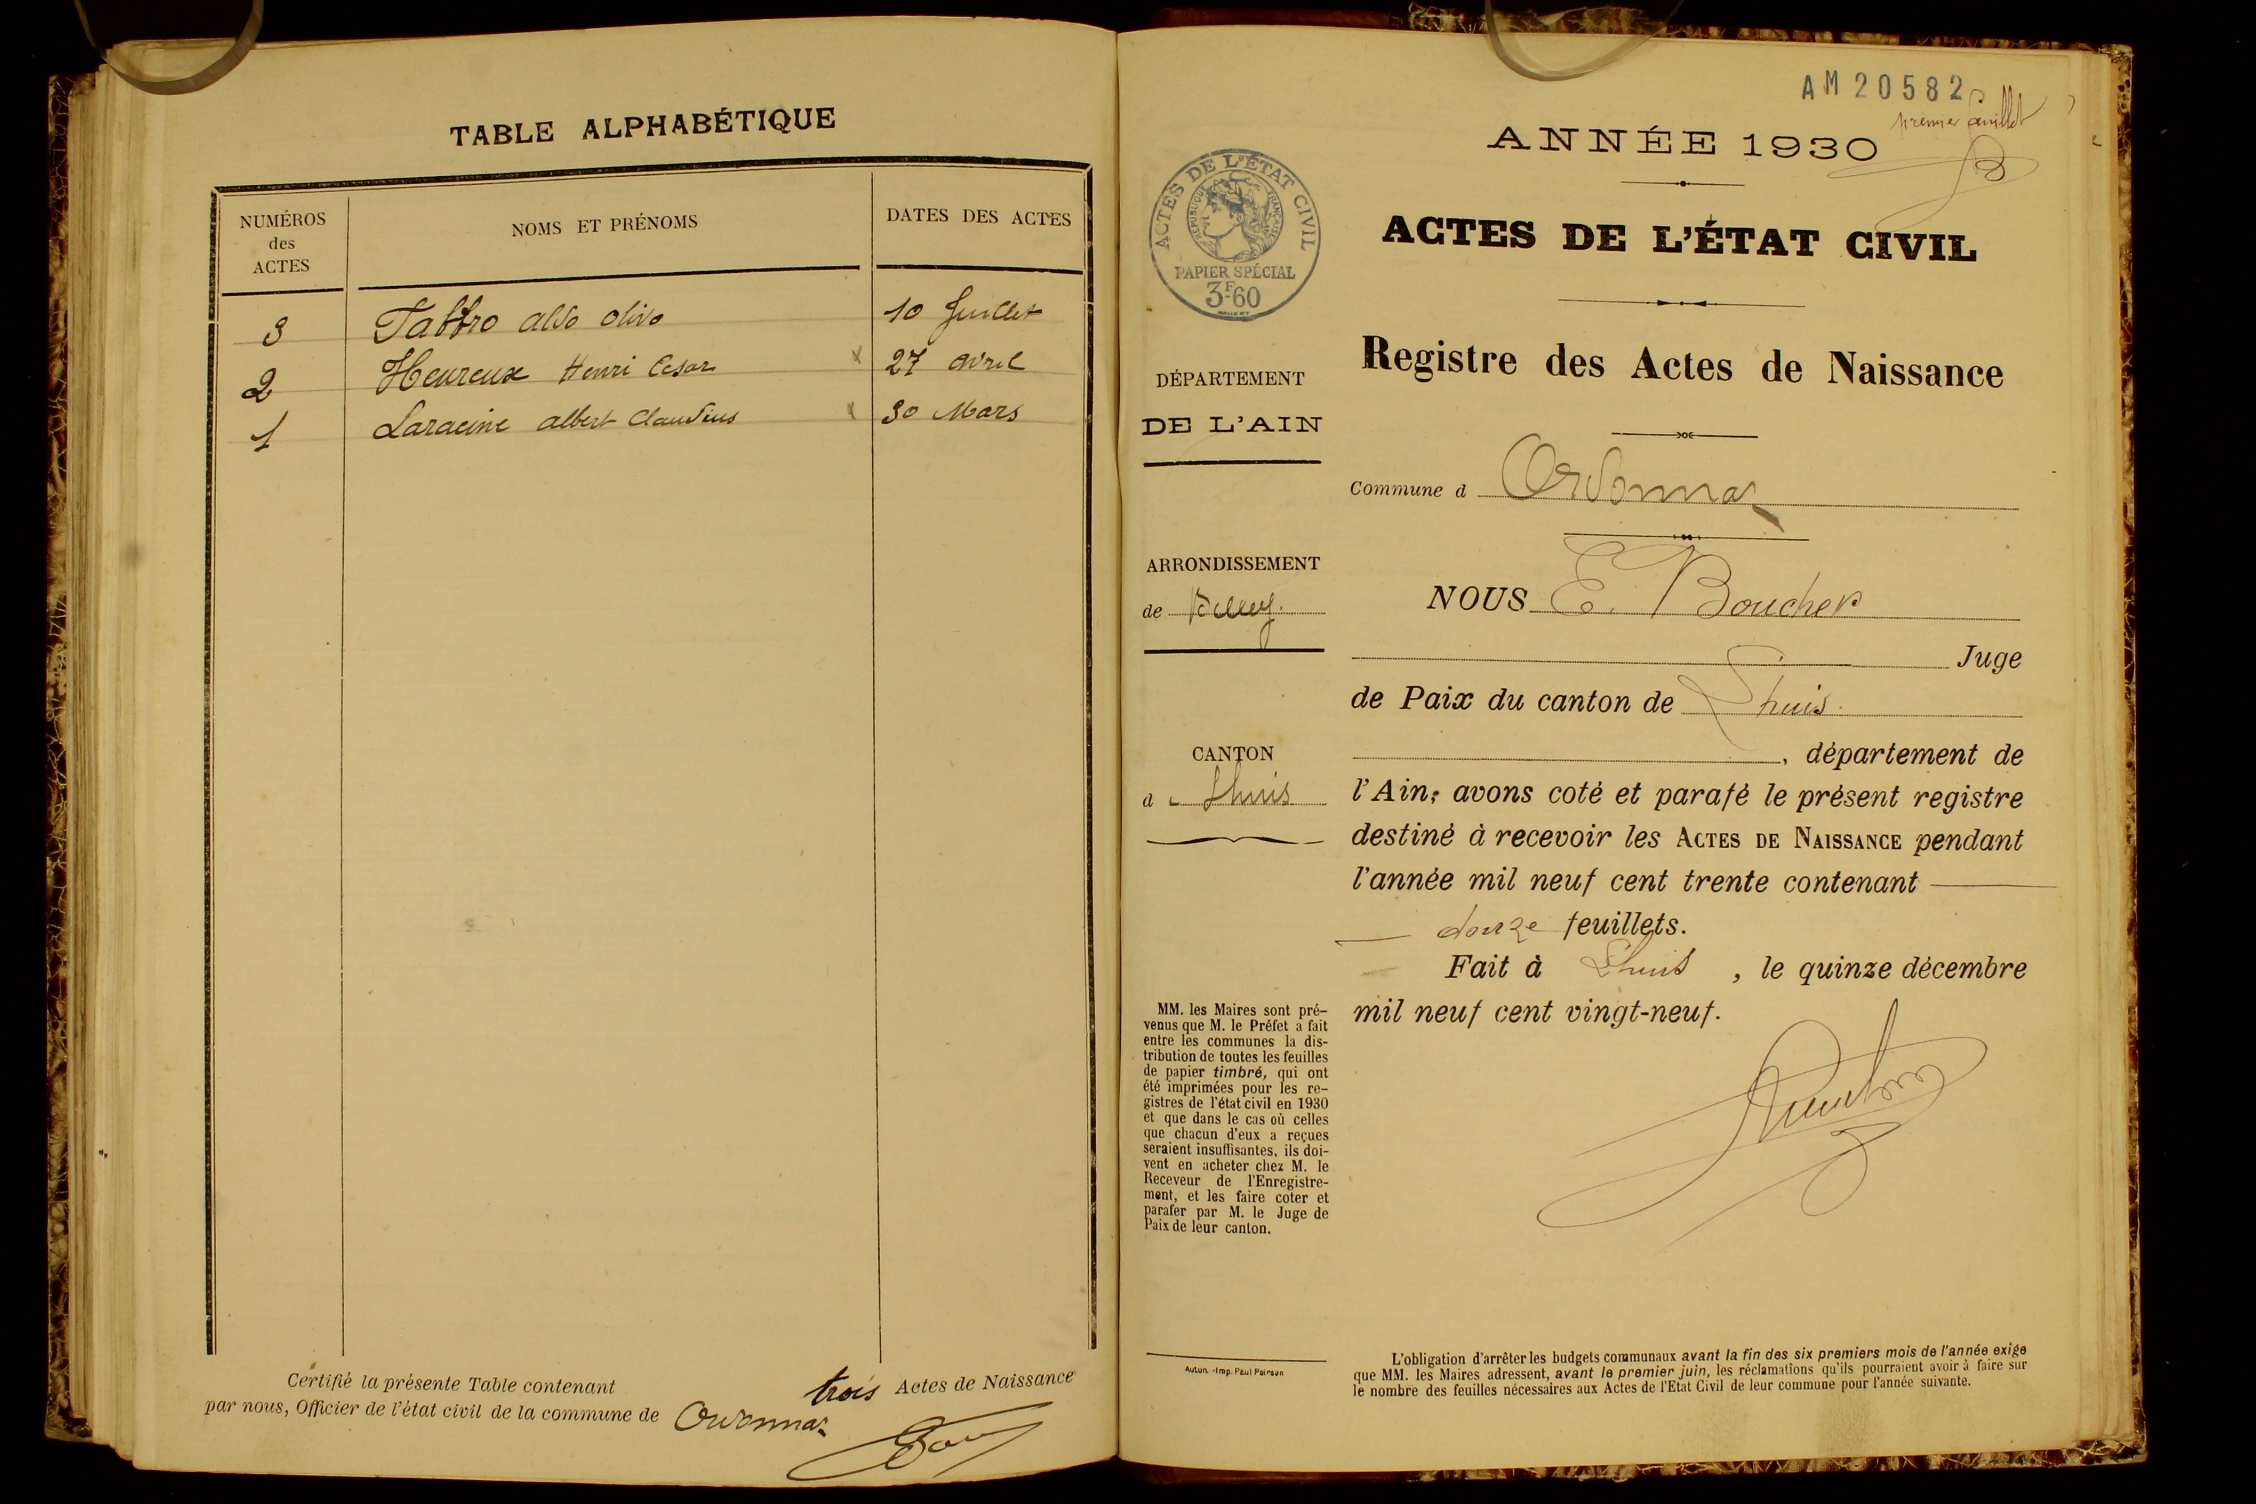 TABLE ALPHABÉTIQUE
NUMÉROS
des
ACTES
NOMS ET PRÉNOMS
DATES DES ACTES
3 Aldo Olivo 10 Juillet
2 Heureux Henri Cesar x 27 avril
1 Laracine albert Claudius x 30 Mars
Certifié la présente Table contenant trois Actes de Naissance
par nous, Officier de l'état civil de la commune de Ordonnaz
AM 20582
premier feuillet
ANNÉE 1930
ACTES DE L'ÉTAT CIVIL
RÉPUBLIQUE FRANÇAISE
PAPIER SPÉCIAL
3F60
ACTES DE L'ÉTAT CIVIL
Registre des Actes de Naissance
DÉPARTEMENT
DE L'AIN
Commune d Ordonnaz
ARRONDISSEMENT
de Belley.
NOUS E. Boucher
Juge
de Paix du canton de Lhuis.
, département de
CANTON
d e Lhuis
l'Ain, avons coté et parafé le présent registre
destiné à recevoir les ACTES DE NAISSANCE pendant
l'année mil neuf cent trente contenant
douze feuillets.
Fait à Lhuis, le quinze décembre
mil neuf cent vingt-neuf.
MM. les Maires sont pré-
venus que M. le Préfet a fait
entre les communes la dis-
tribution de toutes les feuilles
de papier timbré, qui ont
été imprimées pour les re-
gistres de l'état civil en 1930
et que dans le cas où celles
que chacun d'eux a reçues
seraient insuffisantes, ils doi-
vent en acheter chez M. le
Receveur de l'Enregistre-
ment, et les faire coter et
parafer par M. le Juge de
Paix de leur canton.
Autun. - Imp. Paul Poirson
L'obligation d'arrêter les budgets communaux avant la fin des six premiers mois de l'année exige
que MM. les Maires adressent, avant le premier juin, les réclamations qu'ils pourraient avoir à faire sur
le nombre des feuilles nécessaires aux Actes de l'Etat Civil de leur commune pour l'année suivante.